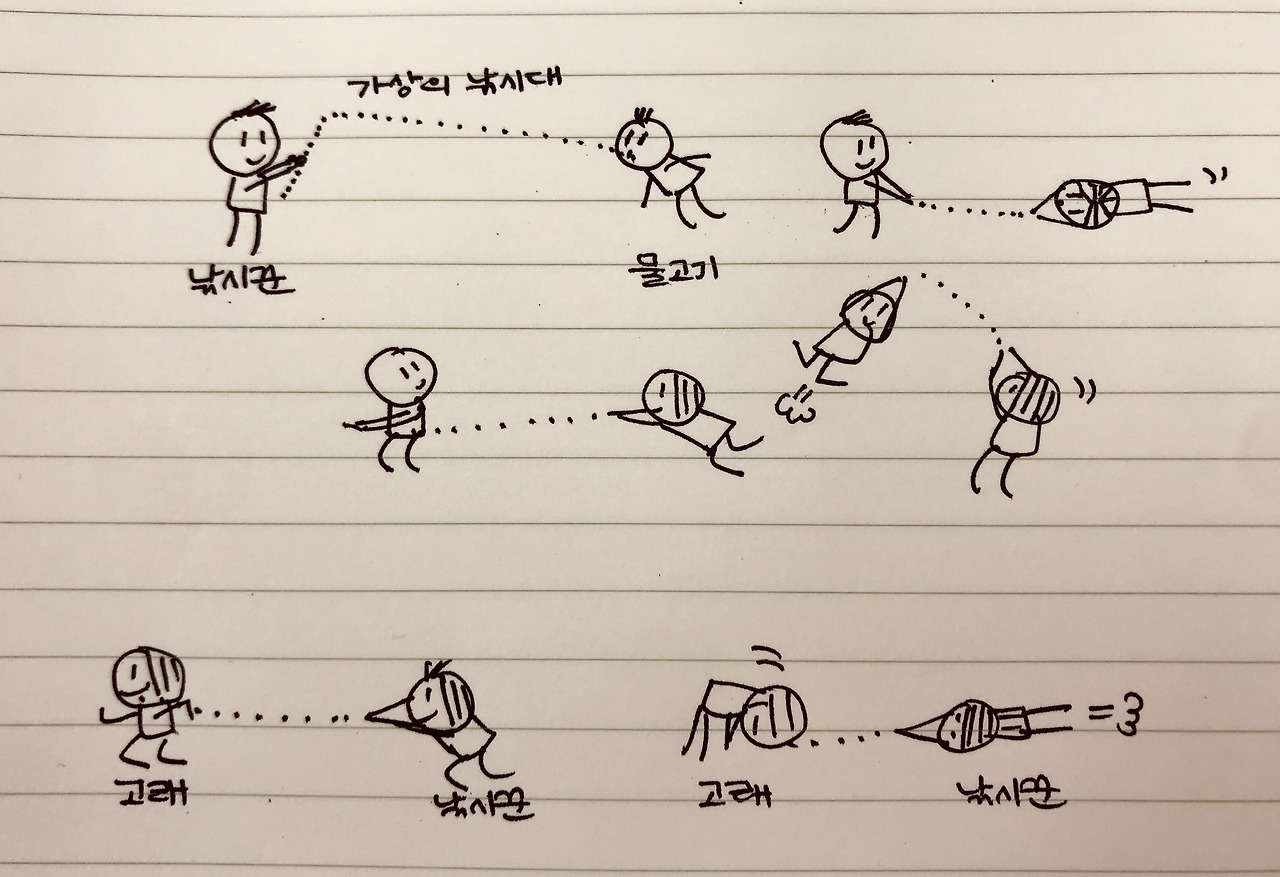 가상의 낚시대
낚시꾼
물고기
고래
낚시꾼
고래
낚시꾼